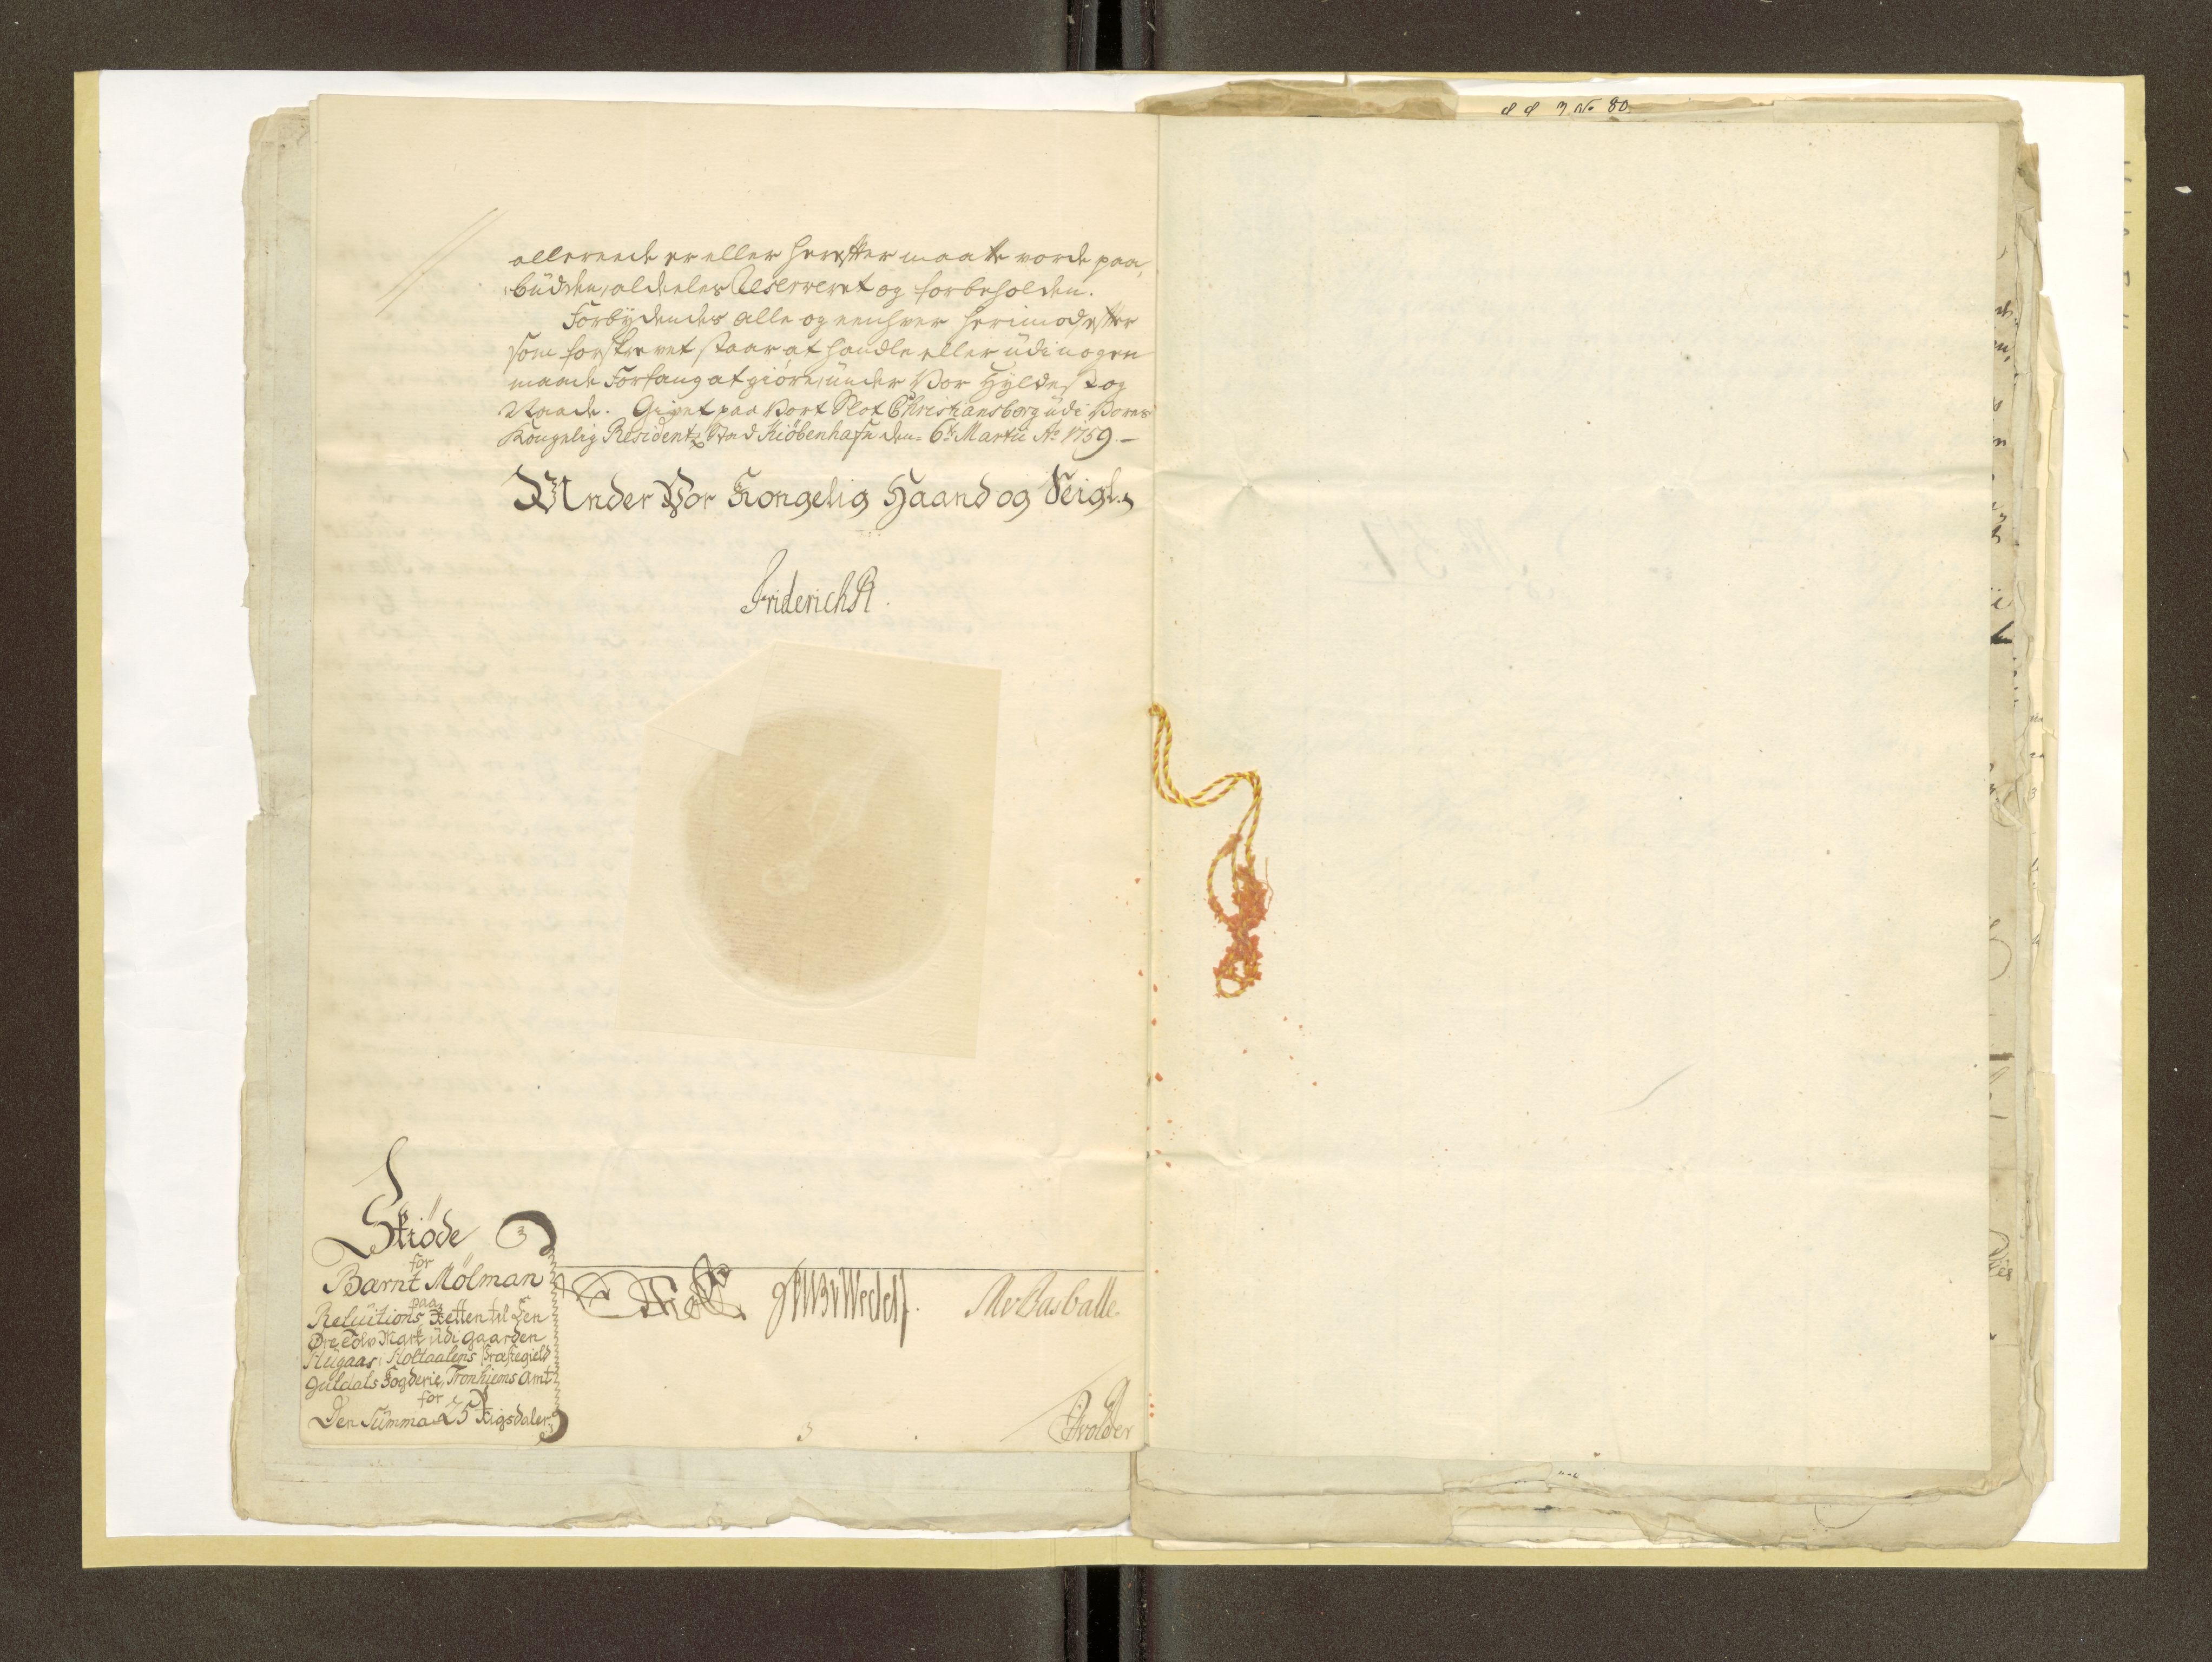 allereede er eller herefter maatte vorde paa,
büdden, aldeeles Reserveret og forbeholden.
Forbydendes alle og eenhver herimod, efter
som forskrevet staar at handle eller üdi nogen
maade Forfang at giøre, ünder Vor Hyldest og
Naade. Givet paa Vort Slot Christiansborg üdi Vores
Kongelig Residentz Stad Kiöbenhafn den 6te Martii Ao 1759.-
Under Vor Kongelig Haand og Seigl.
Friderich R.
Skiöde
for
Bærnt Mölman
paa
Relüitions Retten til Een
Øre Tolv Mark üdi Gaarden
Hügaas, Holtaalens Præstegield
Guldals Fogderie, Tronhiems Amt
for
Den Summa 25 Rigsdaler
Holder
No 80